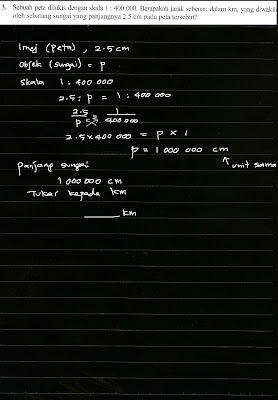 3. Sebuah peta dilukis dengan skala 1 : 400 000. Berapakah jarak sebenar, dalam km, yang diwakili
oleh sebatang sungai yang panjangnya 2.5 cm pada peta tersebut?
Imej (peta) , 2.5 cm
Objek (sungai) = p
skala 1 : 400 000
2.5 : p = 1 : 400 000
2.5 / p = 1 / 400 000
2.5 × 400 000 = p × 1
p = 1 000 000 cm
↑ unit sama
panjang sungai
1 000 000 cm
Tukar kepada km
______ km